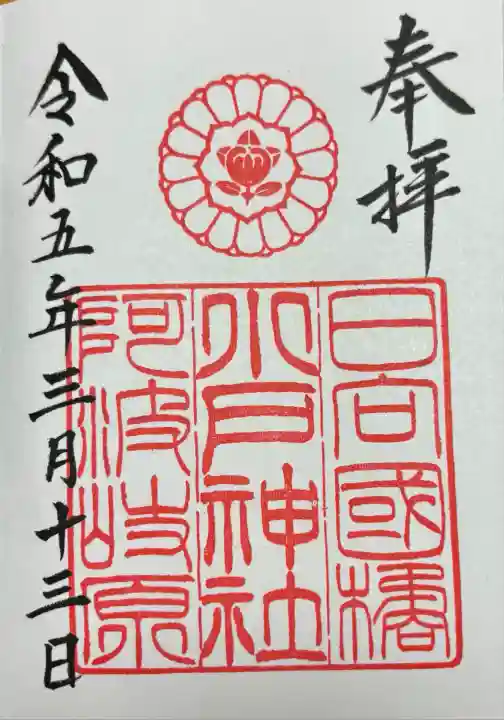 奉拝
日向國橘
小戸神社
阿波岐原
令和五年三月十三日